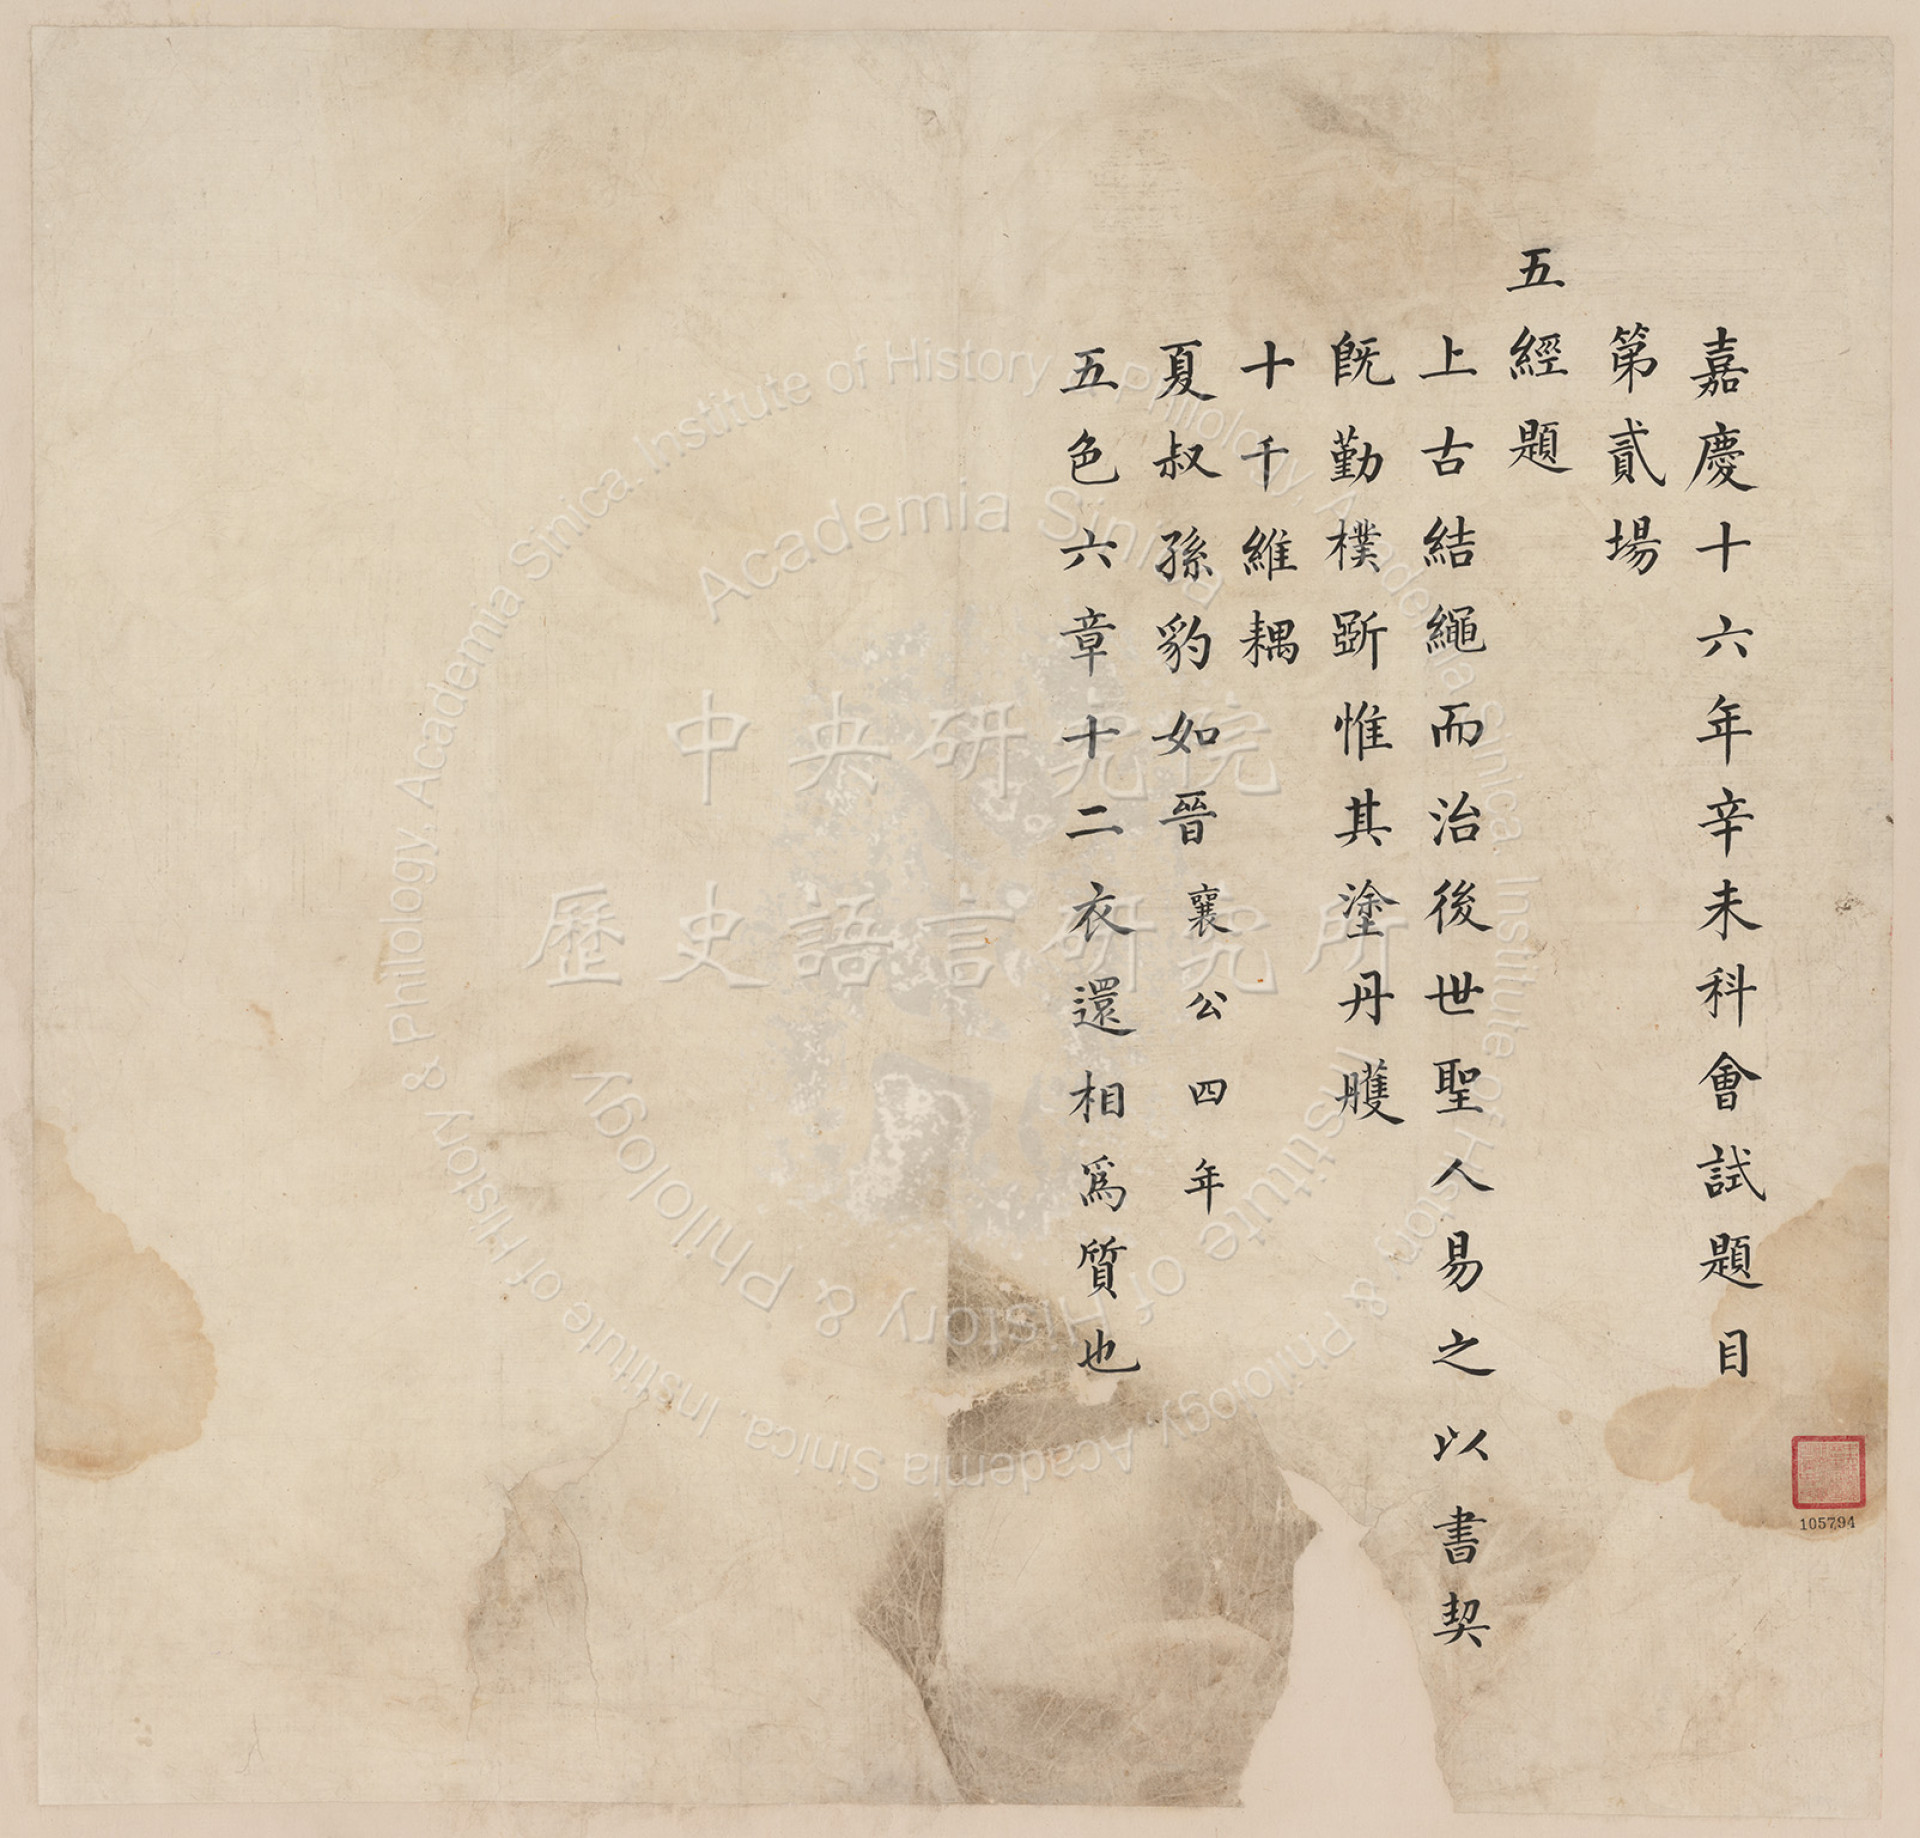 嘉慶十六年辛未科會試題目
第貳場
五經題
上古結繩而治後世聖人易之以書契
旣勤樸斲惟其塗丹雘
十千維耦
夏叔孫豹如晉襄公四年
五色六章十二衣還相爲質也
105794
中央研究院
歷史語言研究所
Academia Sinica
Institute of History & Philology, Academia Sinica.